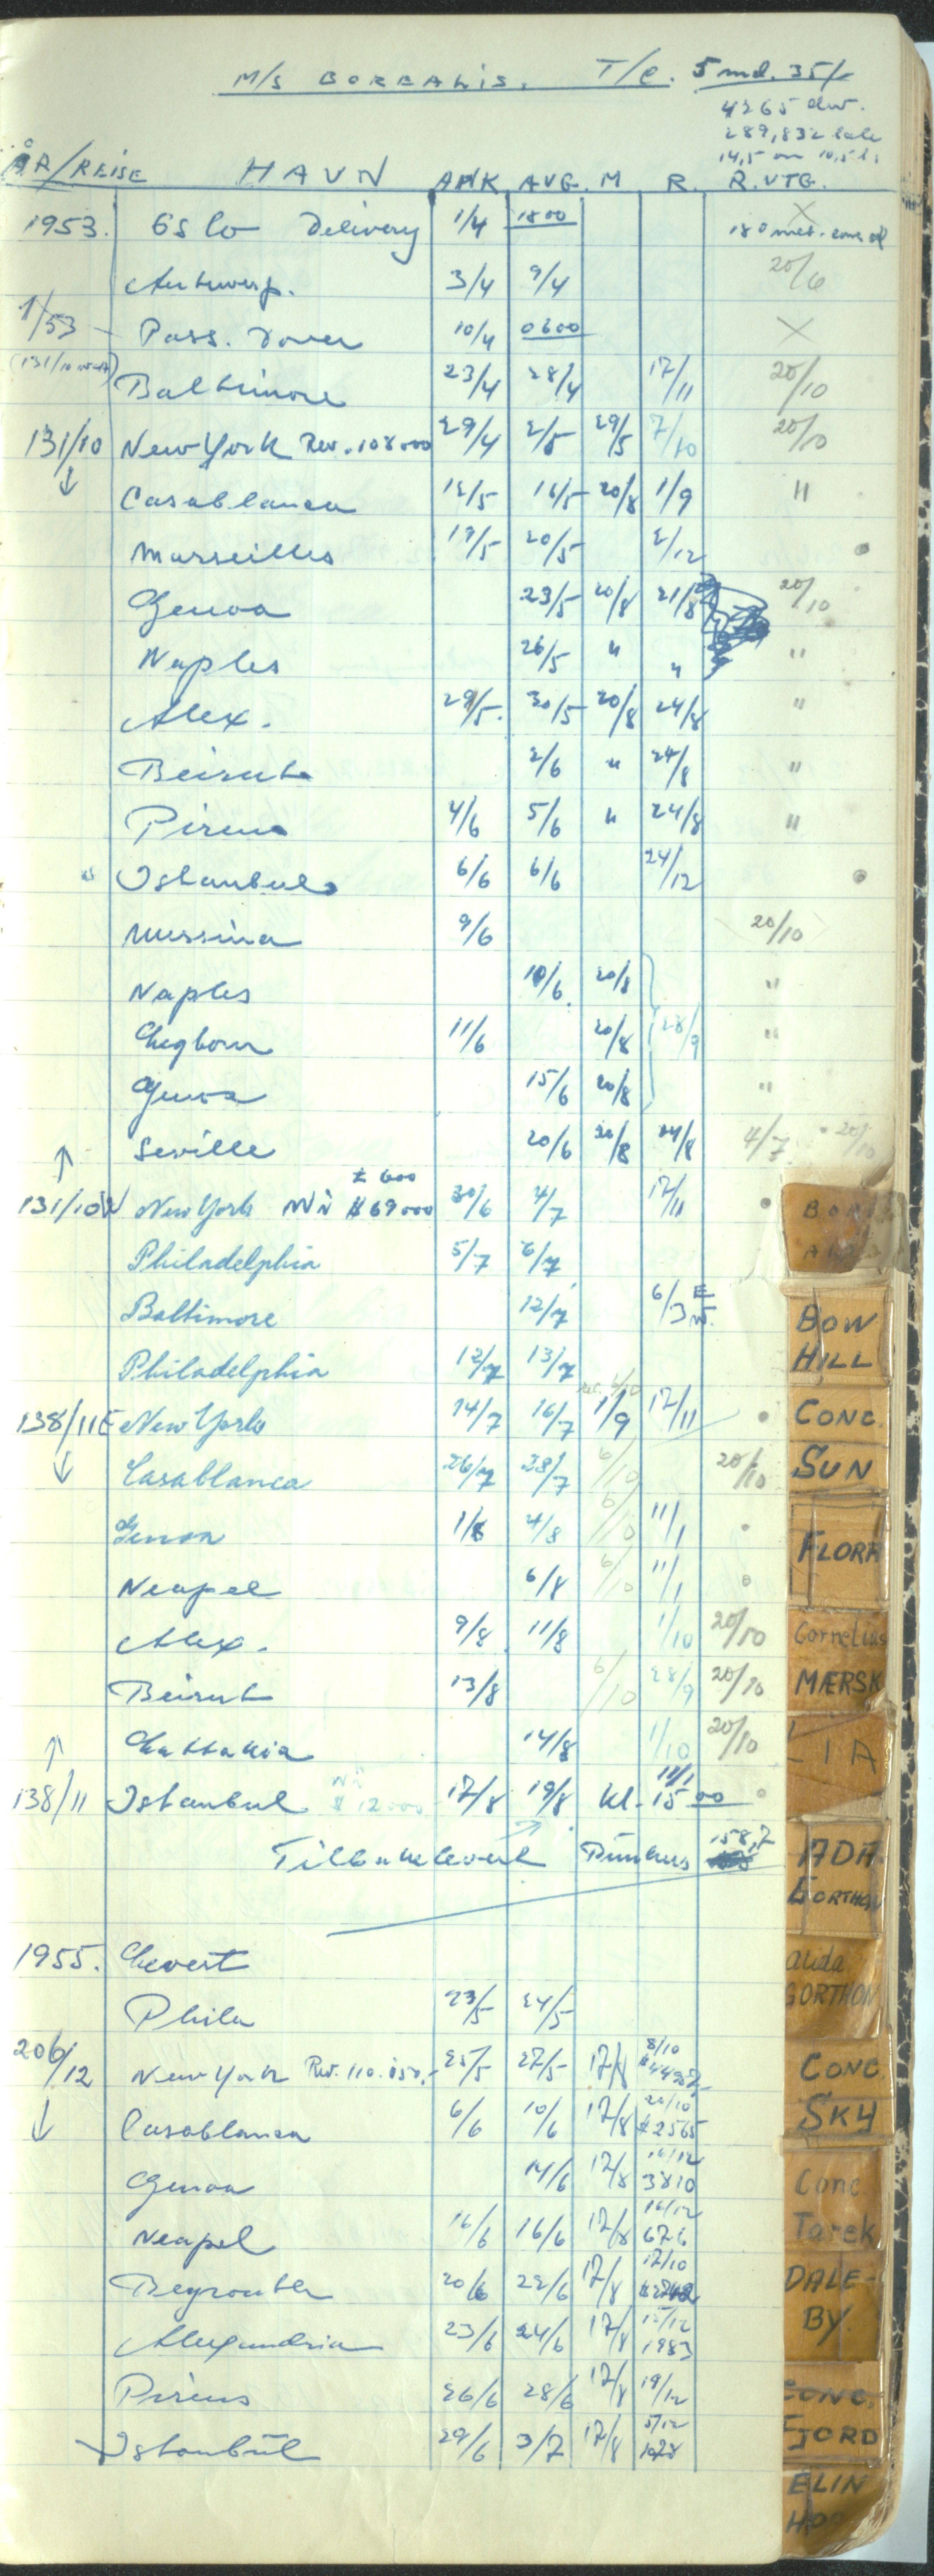 M/S BOREALIS. T/C. 5 md. 35/-
4265 dw.
289,832 bale
14,5 on 10,5 t.
ÅR/REISE HAVN ANK AVG. M R. R.UTG.
1953. Oslo Delivery 1/4 1800 X
180 met.
Antwerp. 3/4 9/4 20/6
1/53 Pass. Dover 10/4 0600 X
Baltimore 23/4 28/4 17/11 20/10
131/10 New York Rev. 108000 29/4 2/5 29/5 7/10 20/10
↓ Casablanca 12/5 16/5 20/8 1/9 "
Marseilles 19/5 20/5 2/12
Genoa 23/5 20/8 21/8 20/10
Naples 26/5 " " "
Alex. 29/5. 30/5 20/8 24/8 "
Beirut 2/6 " 24/8 "
Pireus 4/6 5/6 " 24/8 "
Istanbul 6/6 6/6 24/12
Messina 9/6 20/10
Naples 10/6 20/8 "
Leghorn 11/6 20/8 28/9 "
Genoa 15/6 20/8 "
↑ Seville 20/6 20/8 24/8 4/7 20/10
£ 600
131/10W New York $ 69000 30/6 4/7 17/11
Philadelphia 5/7 6/7
Baltimore 12/7 6/3 E W.
Philadelphia 12/7 13/7
138/11E New York 14/7 16/7 1/9 17/11
↓ Casablanca 26/7 28/7 6/10 20/10
Genoa 1/8 4/8 6/10 11/1
Neapel 6/8 6/10 11/1
Alex. 9/8 11/8 1/10 20/10
Beirut 13/8 6/10 28/9 20/10
↑ Lattakia 14/8 1/10 20/10
138/11 Istanbul $ 12000 17/8 19/8 kl. 15 00 11/1
Tilbakelevert Bunkers 158,7
1955. Levert
Phila 23/5 24/5
206/12 New York Rev. 110.050,- 25/5 27/5 17/8 8/10
↓ Casablanca 6/6 10/6 17/8 20/10 $2565
Genoa 14/6 17/8 16/12 3810
Neapel 16/6 16/6 17/8 16/12 676
Beyrouth 20/6 22/6 17/8 17/10
Alexandria 23/6 24/6 17/8 15/12 1983
Pireus 26/6 28/6 17/8 19/12
Istanbul 29/6 3/7 17/8 5/12 1028
BOW
HILL
CONC.
SUN
FLORA
Cornelius
MÆRSK
LIA
IADA
GORTHON
Alida
GORTHON
CONC
SKY
Conc
Tarek
DALE-
BY.
CONC.
FJORD
ELIN